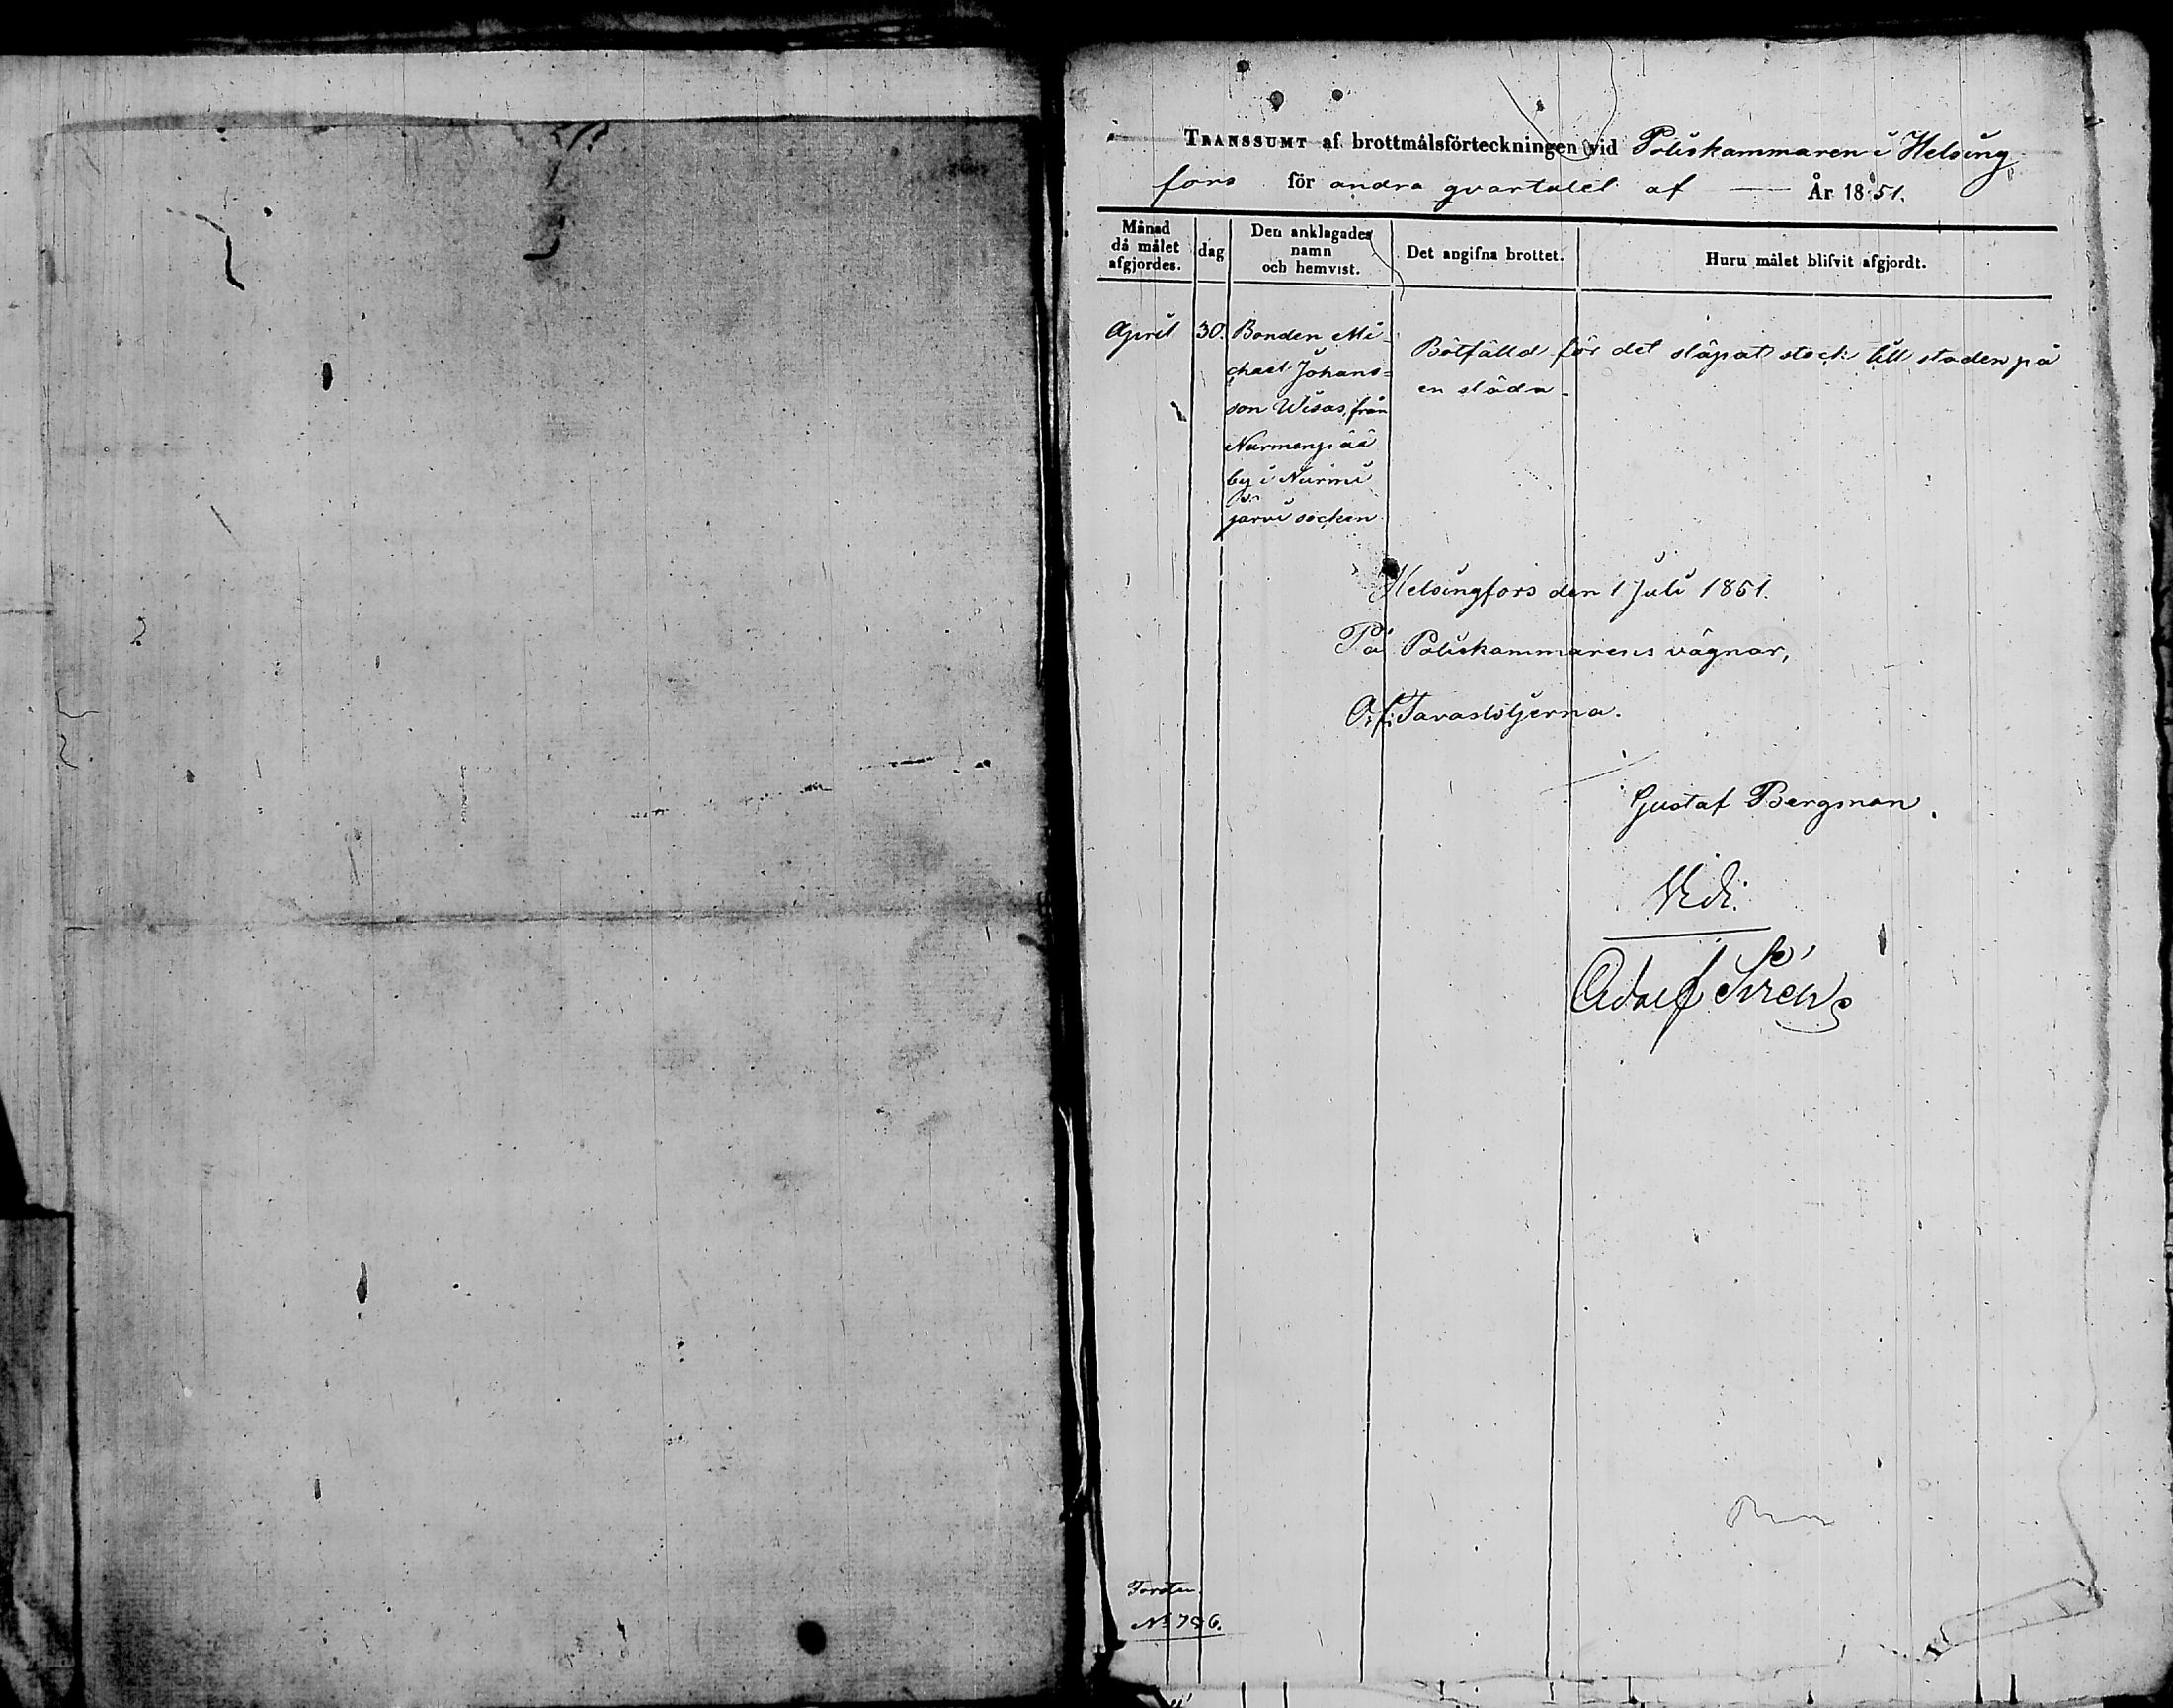 TRANSSUMT af brottmålsförteckningen vid Poliskammaren i Helsing
fors för andra qvartalet af — År 1851.
Månad då målet afgjordes.
dag
Den anklagades namn och hemvist.
Det angifna brottet.
Huru målet blifvit afgjordt.
April 30. Bonden Mi-
chael Johans=
son Wisas, från
Nurmenpää
by i Nurmi
järvi socken
Bötfälld för det släpat stock till staden på
en släda.
Helsingfors den 1 Juli 1851.
På Poliskammarens vägnar,
A: f: Tavaststjerna.
Gustaf Bergman.
Vidi:
Adolf Sirén
No 786.